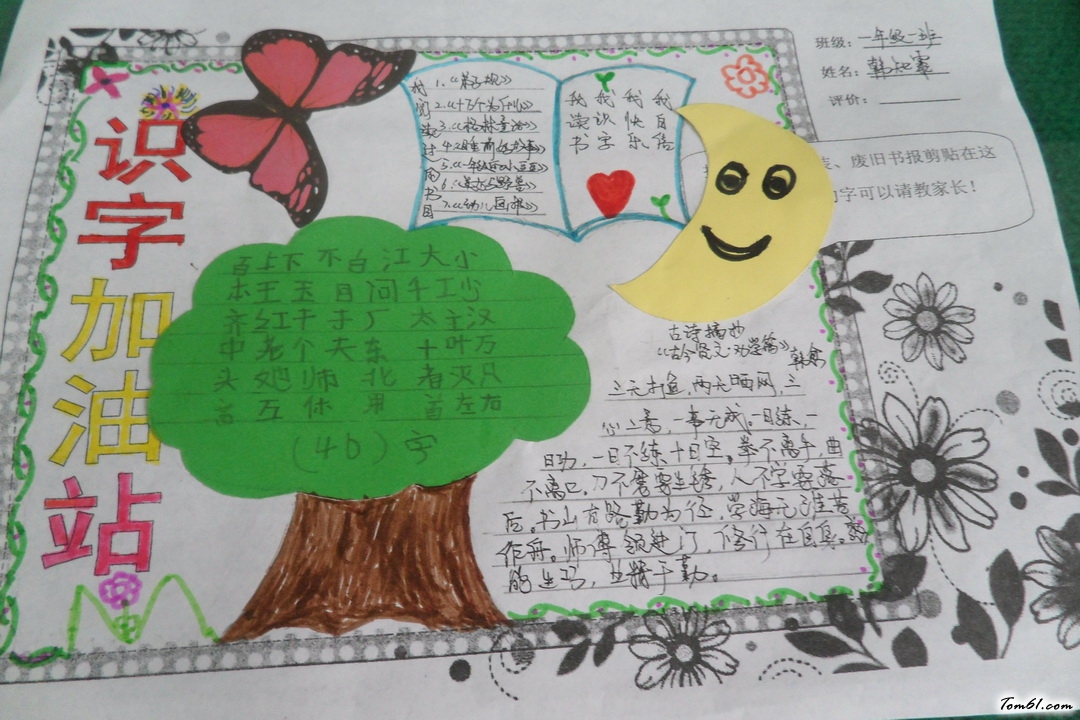 识字加油站
班级：一年级一班
姓名：韩知霖
评价：
、废旧书报剪贴在这
字可以请教家长！
我阅读过的书目
1.《弟子规》
2.《十万个为什么》
3.《格林童话》
4.《睡前好故事》
5.《一年级的小豆豆》
7.《幼儿画报》
我读书
我识字
我快乐
我自信
百上下不白江大小
本王玉目问千工少
齐红干于厂太主汉
中老个夫东十叶万
头她师北者灭只
言互休用首左右
(46)字
古诗摘抄
《古今贤文·劝学篇》
三天打鱼，两天晒网，三
心二意，一事无成。一日练，一
日功，一日不练十日空。拳不离手，曲
不离口。刀不磨要生锈，人不学要落
后。书山有路勤为径，学海无涯苦
作舟。师傅领进门，修行在自身。熟
能生巧，业精于勤。
Tom61.com